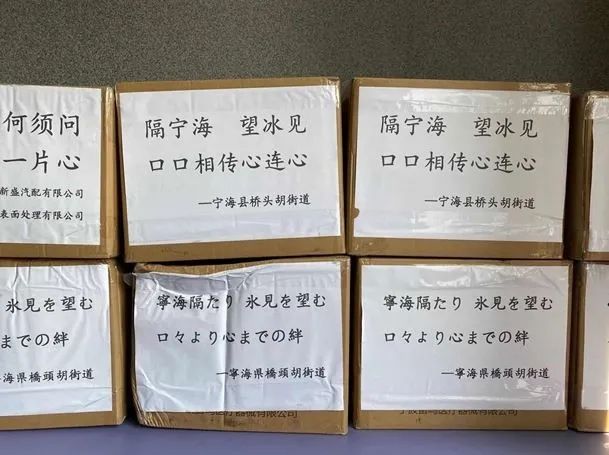 何须问
一片心
新盛汽配有限公司
表面处理有限公司
隔宁海 望冰见
口口相传心连心
—宁海县桥头胡街道
隔宁海 望冰见
口口相传心连心
—宁海县桥头胡街道
氷見を望む
までの絆
海県橋頭胡街道
寧海隔たり 氷見を望む
口々より心までの絆
—寧海県橋頭胡街道
医疗器械有限公司
寧海隔たり 氷見を望む
口々より心までの絆
—寧海県橋頭胡街道
医疗器械有限公司